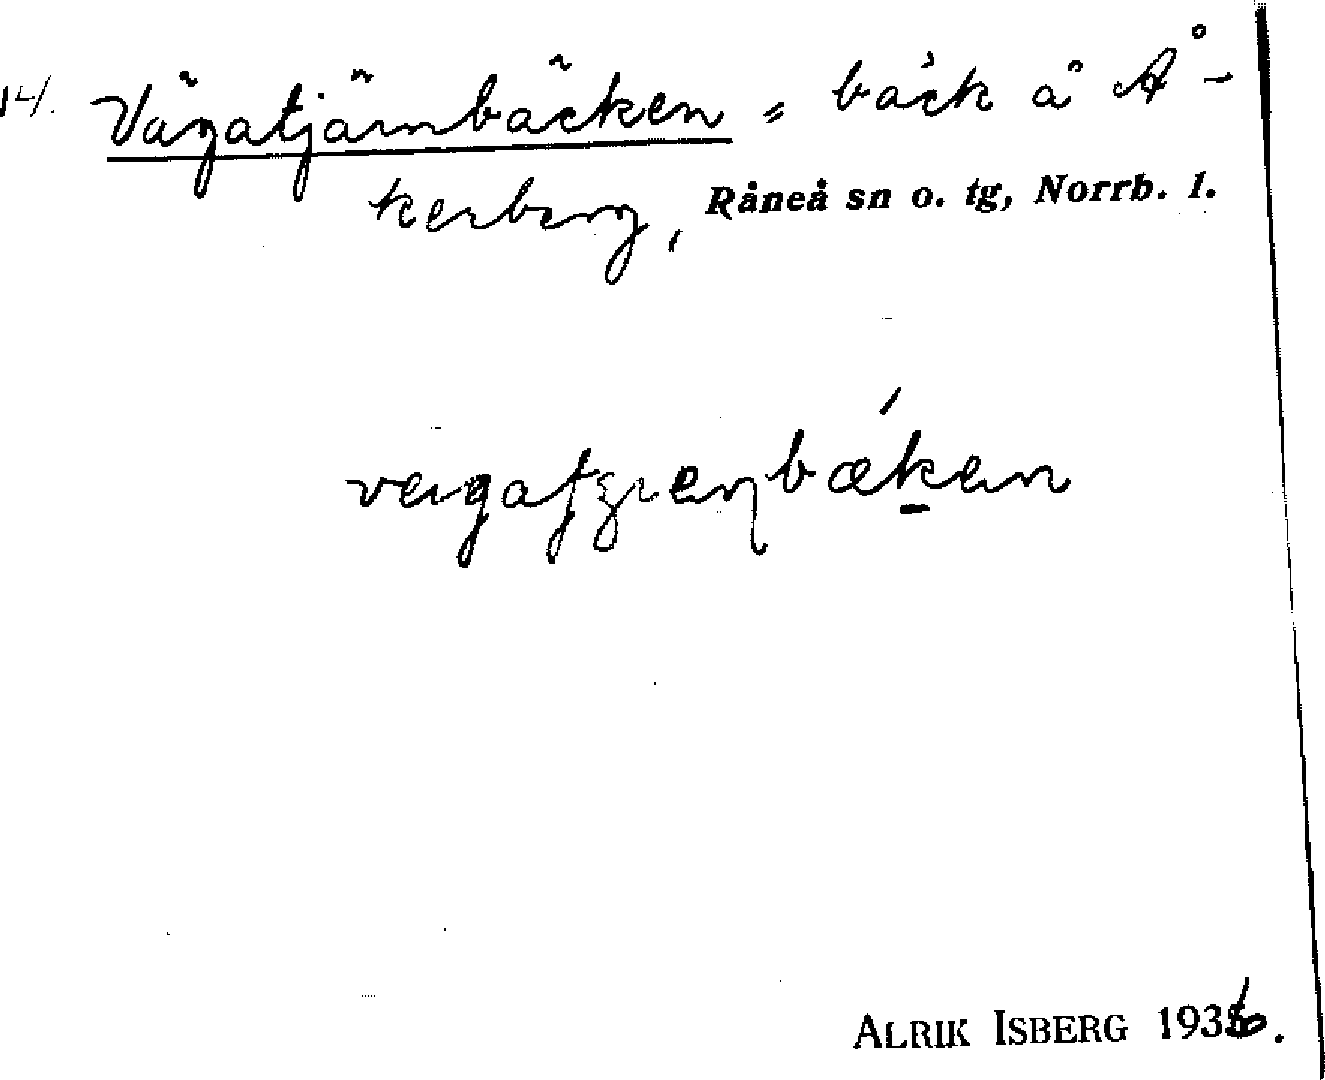 14. Vägatjärnbäcken = bäck å Å-
kerberg, Råneå sn o. tg, Norrb. l.
ALRIK ISBERG 1936.